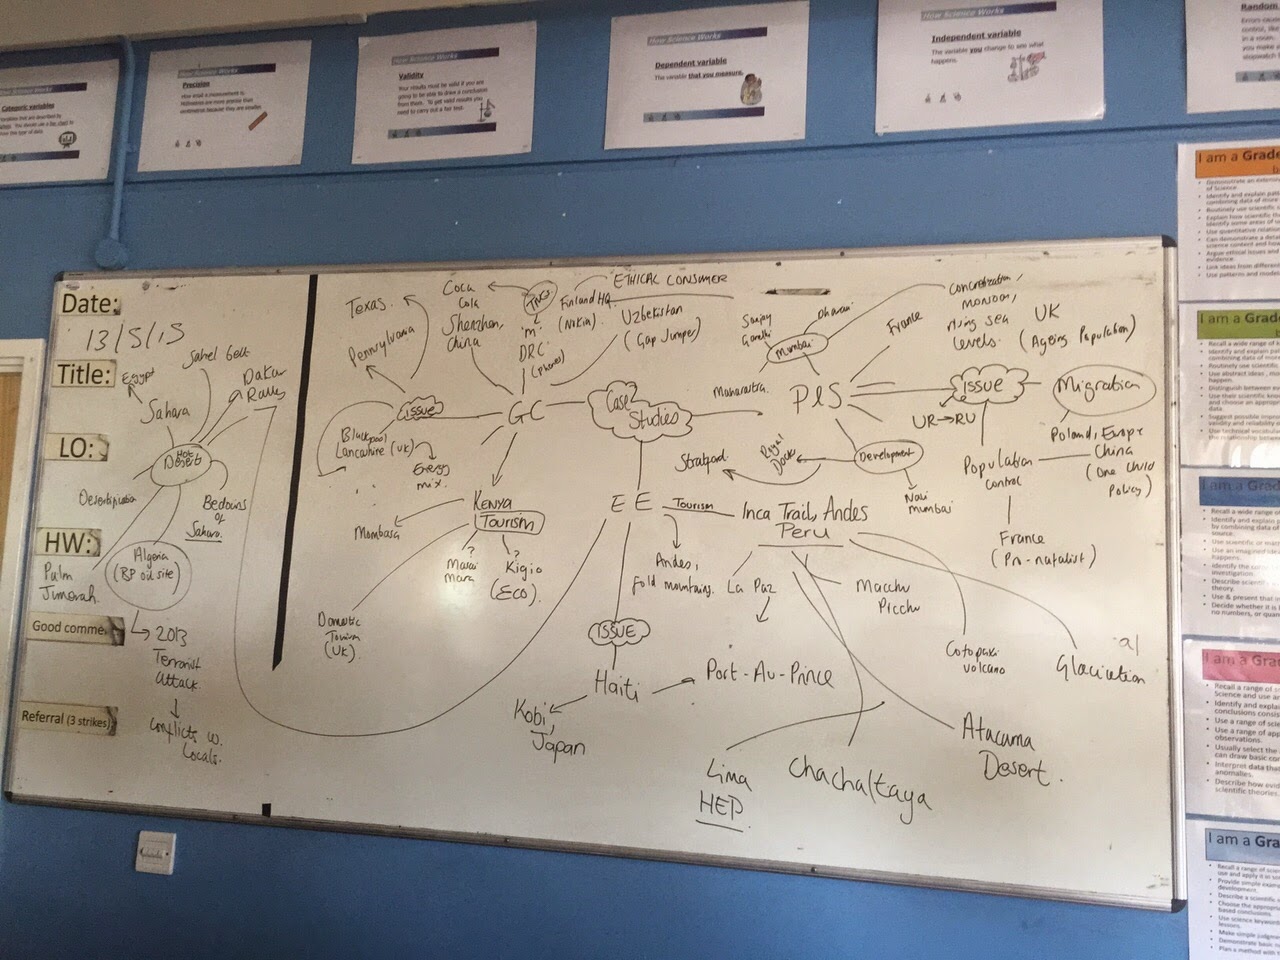 How Science Works
Categoric variables
How Science Works
Precision
How Science Works
Validity
Your results must be valid if you are
going to be able to draw a conclusion
from them. To get valid results you
need to carry out a fair test.
How Science Works
Dependent variable
The variable that you measure.
How Science Works
Independent variable
The variable you change to see what
happens.
Random
Date:
13/5/15
Title:
LO:
HW:
Good comme
Referral (3 strikes)
Egypt
Sahel belt
Dakar
Rally
Sahara
Hot
Desert
Desertification
Bedouins
of
Sahara.
Algeria
(BP oil site)
Palm
Jumerah.
2013
Terrorist
Attack
Conflicts w.
Locals.
Texas
Pennylvania
Coca
Cola
Shenzhen,
China
TNCs
'M'
DRC
(phones)
Finland HQ
(Nokia)
ETHICAL CONSUMER
Uzbekistan
(Gap Jumper)
ISSUE
GC
Case
Studies
Blackpool
Lancashire (UK)
Energy
mix.
Kenya
Tourism
Mombasa
Masai
Mara
Kigio
(Eco).
Domestic
Tourism
(UK).
EE
Tourism
Inca Trail, Andes
Peru
Andes,
fold mountains.
La Paz
Macchu
Picchu
Cotopaxi
volcano
Glaciation
Atacama
Desert.
Chachaltaya
Lima
HEP
ISSUE
Haiti
Port-Au-Prince
Kobi,
Japan
Sanjay
Gandhi
Dharavi
Mumbai
Maharastra
P&S
France
concretisation,
monsoon,
rising sea
levels.
UK
(Ageing Population)
ISSUE
Migration
UR→RU
Poland, Europe
Population
Control
China
(One Child
Policy)
France
(Pro-natalist)
Development
Royal
Docks
Stratford
Navi
Mumbai
a/
I am a Grade
I am a Grade
I am a Grad
I am a Grad
I am a Gra